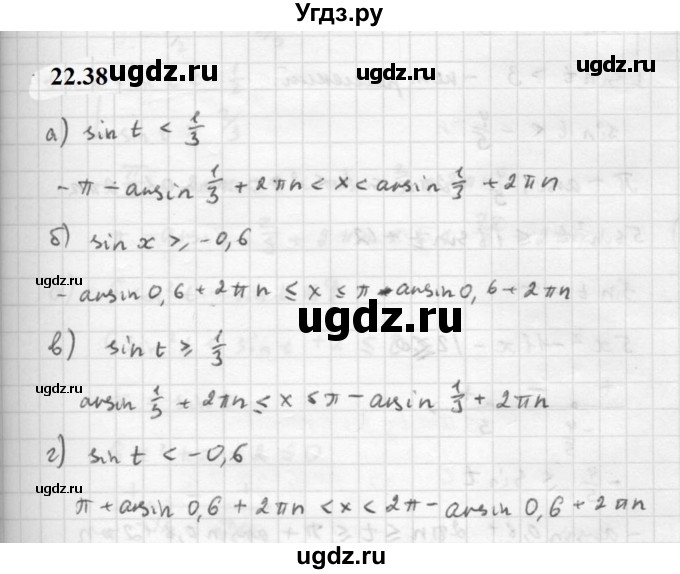 Угдз.ру
22.38 ugdz.ru ugdz.ru
а) sin t < 1/3
-π - arsin 1/3 + 2πn < x < arsin 1/3 + 2πn
ugdz.ru
б) sin x ⩾ -0,6
ugdz.ru
- arsin 0,6 + 2πn ≤ x ≤ π - arsin 0,6 + 2πn
ugdz.ru
в) sin t ⩾ 1/3
ugdz.ru
arsin 1/3 + 2πn ≤ x ≤ π - arsin 1/3 + 2πn
г) sin t < -0,6
ugdz.ru
π + arsin 0,6 + 2πn < x < 2π - arsin 0,6 + 2πn
ugdz.ru